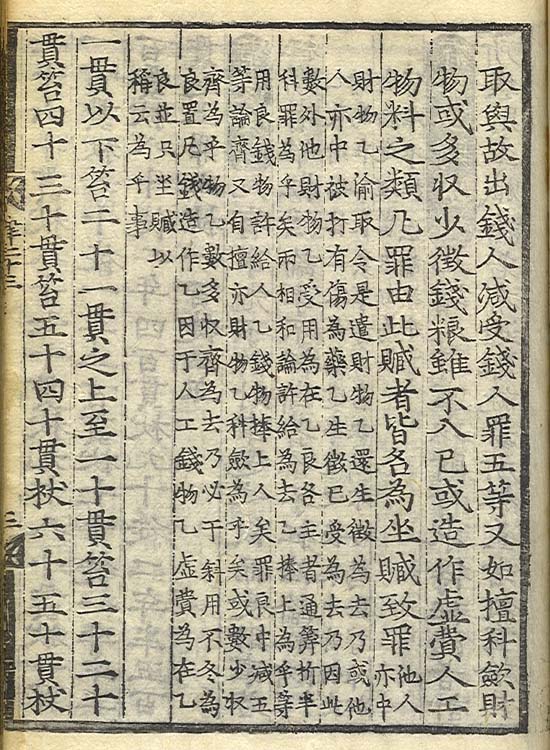 取與故出錢人減受錢人罪五等又如擅科斂財
物或多収少徵錢粮雖不入已或造作虛費人工
物料之類凡罪由此贓者皆各為坐贓致罪他人
亦中
財物乙渝取令是遣財物乙還生徵為去乃或他
人亦中被打有傷為藥乙生徵已受為去乃因此
數外他財物乙受用為在乙良各主者通筭折半
科罪為乎矣兩相和論許給為去乙捧上為乎等
用良錢物許給人乙錢物捧上人矣罪良中減五
等論齊又自擅亦財物乙科斂為乎矣或數少収
齊為乎物乙數多収齊為去乃必于斜用不冬為
良置凡錢造作乙因于人工錢物乙虛費為在乙
良並只坐贓以
稱云為乎事
一貫以下笞二十一貫之上至一十貫笞三十二十
貫笞四十三十貫笞五十四十貫杖六十五十貫杖